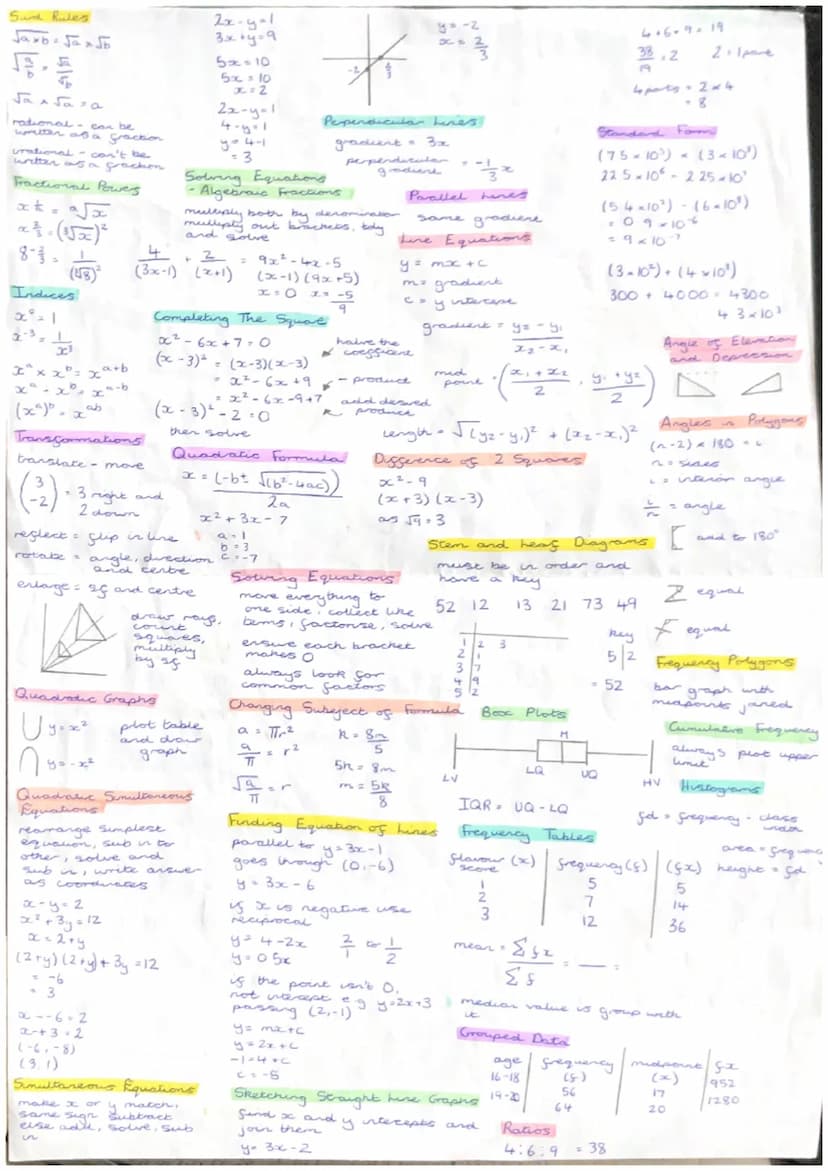 Surd Rules
√a×b = √a × √b
√a/b = √a/√b
√a × √a = a
rational - can be
written as a fraction
irrational - can't be
written as a fraction
Fractional Powers
x^1/n = ⁿ√x
x^2/3 = (³√x)²
8^-2/3 = 1/(³√8)²
Indices
x⁰ = 1
x⁻³ = 1/x³
x^a × x^b = x^a+b
x^a ÷ x^b = x^a-b
(x^a)^b = x^ab
Transformations
translate - move
(3 -2) = 3 right and
2 down
reflect = flip in line
rotate = angle, direction
and centre
enlarge = sf and centre
draw rays,
count
squares,
multiply
by sf
Quadratic Graphs
y = x²
y = -x²
plot table
and draw
graph
Quadratic Simultaneous
Equations
rearrange simplest
equation, sub in to
other, solve and
sub in, write answer
as coordinates
x - y = 2
x² + 3y = 12
x = 2 + y
(2+y)(2+y) + 3y = 12
= -6
= 3
x - -6 = 2
x + 3 = 2
(-6, -8)
(3, 1)
Simultaneous Equations
make x or y match,
same sign subtract
else add, solve, sub
in
2x - y = 1
3x + y = 9
5x = 10
5x = 10
x = 2
2x - y = 1
4 - y = 1
y = 4 - 1
= 3
Solving Equations
- Algebraic Fractions
multiply both by denominator
multiply out brackets, tidy
and solve
4/(3x-1) + 2/(x+1) = 9x² - 4x - 5
(x-1)(9x+5)
x = 0 x = -5/9
Completing The Square
x² - 6x + 7 = 0
halve the
coefficient
(x-3)² = (x-3)(x-3)
= x² - 6x + 9 - product
= x² - 6x - 9 + 7 add desired
product
(x-3)² - 2 = 0
then solve
Quadratic Formula
x = (-b ± √(b² - 4ac))/2a
x² + 3x - 7
a = 1
b = 3
c = -7
Solving Equations
move everything to
one side, collect like
terms, factorise, solve
ensure each bracket
makes 0
always look for
common factors
Changing Subject of Formula
a = πr²
a/π = r²
√a/π = r
k = 8m/5
5k = 8m
m = 5k/8
Finding Equation of Lines
parallel to y = 3x - 1
goes through (0, -6)
y = 3x - 6
if x is negative use
reciprocal
y = 4 - 2x 2/1 to 1/2
y = 0.5x
if the point isn't 0,
not intercept e.g y=2x+3
passing (2, -1)
y = mx + c
y = 2x + c
-1 = 4 + c
c = -5
Sketching Straight Line Graphs
find x and y intercepts and
join them
y = 3x - 2
-2 2/3
y = -2
x = 2/3
Perpendicular Lines
gradient = 3x
perpendicular
gradient = -1/3 x
Parallel Lines
same gradient
Line Equations
y = mx + c
m = gradient
c = y intercept
gradient = y₂ - y₁/x₂ - x₁
mid
point = (x₁ + x₂/2, y₁ + y₂/2)
length = √(y₂ - y₁)² + (x₂ - x₁)²
Difference of 2 Squares
x² - 9
(x+3)(x-3)
as √9 = 3
Stem and Leaf Diagrams
must be in order and
have a key
52 12 13 21 73 49
1 | 2 3
2 | 1
3 | 7
4 | 9
5 | 2
key
5 | 2
= 52
Box Plots
M
LV LQ UQ HV
IQR = UQ - LQ
Frequency Tables
flavour (x)
score
frequency (f) (fx)
1 5 5
2 7 14
3 12 36
mean = Σfx/Σf = — =
median value is group with
it
Grouped Data
age frequency (f) midpoint (x) fx
16-18 56 17 952
19-20 64 20 1280
Ratios
4 : 6 : 9 = 38
4 + 6 + 9 = 19
38/19 = 2 2 = 1 part
4 parts = 2 × 4
= 8
Standard Form
(7.5 × 10³) × (3 × 10³)
22.5 × 10⁶ = 2.25 × 10⁷
= 0.9 × 10⁻⁶
= 9 × 10⁻⁷
300 + 4000 = 4300
4.3 × 10³
Angle of Elevation
and Depression
Angles in Polygons
(n-2) × 180 = i
n = sides
i = interior angle
i/n = angle
add to 180°
Z equal
F equal
Frequency Polygons
bar graph with
midpoints joined
Cumulative Frequency
always plot upper
limit
Histograms
fd = frequency ÷ class
width
area = frequenc
height = fd